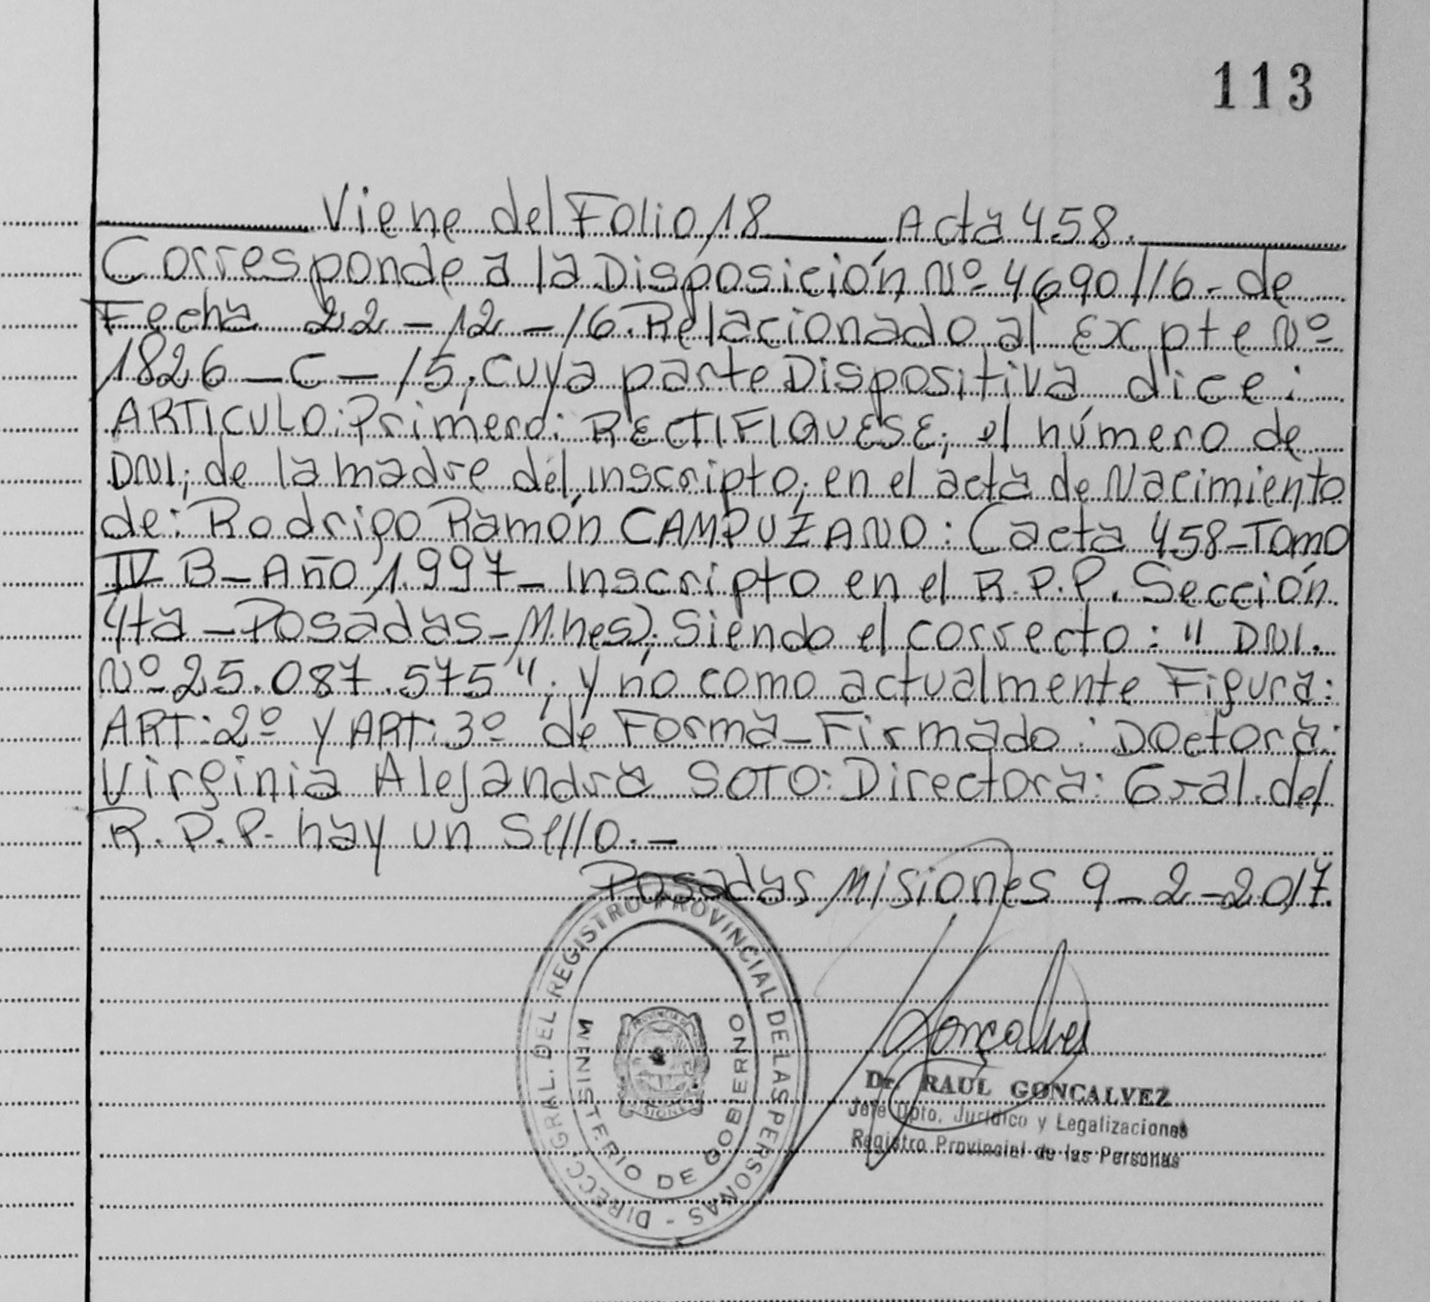 113
Viene del Folio 18 Acta 458.
Corresponde a la Disposición Nº 4690/16- de
Fecha 22-12-16. Relacionado al Expte Nº
1826-C-15, cuya parte Dispositiva dice:
ARTICULO: Primero: RECTIFIQUESE, el número de
DNI; de la madre del inscripto, en el acta de Nacimiento
de: Rodrigo Ramón CAMPUZANO: (acta 458-Tomo
IV B-Año 1.997- Inscripto en el R.P.P. Sección
4ta-Posadas-Mnes); Siendo el correcto: " DNI.
Nº 25.087.575"; y no como actualmente Figura:
ART: 2º y ART: 3º de Forma-Firmado: Doctora:
Virginia Alejandra SOTO: Directora: Gral. del
R.P.P. hay un Sello.-
Posadas Misiones 9-2-2017.
DIRECC. GRAL. DEL REGISTRO PROVINCIAL DE LAS PERSONAS -
MINISTERIO DE GOBIERNO
PROVINCIA DE
MISIONES
Goncalves
Dr. RAUL GONCALVEZ
Jefe Dpto. Jurídico y Legalizaciones
Registro Provincial de las Personas